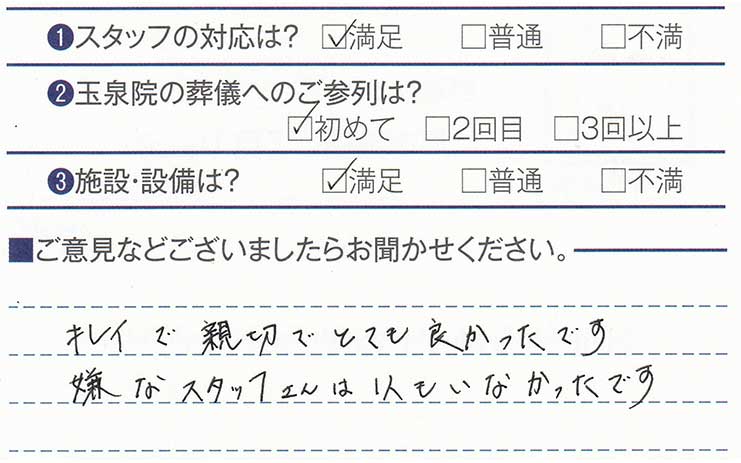 ❶スタッフの対応は? ☑満足 □普通 □不満
❷玉泉院の葬儀へのご参列は?
☑初めて □2回目 □3回以上
❸施設・設備は? ☑満足 □普通 □不満
■ご意見などございましたらお聞かせください。
キレイで親切でとても良かったです
嫌なスタッフさんは1人もいなかったです